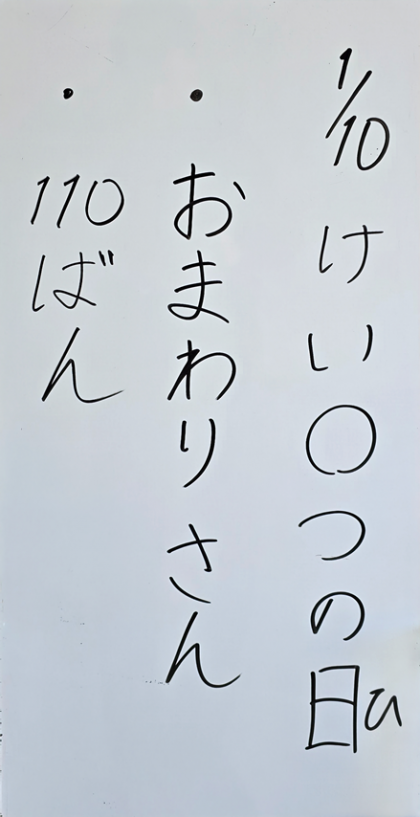 1/10 けい〇つの日ひ
・おまわりさん
・110ばん